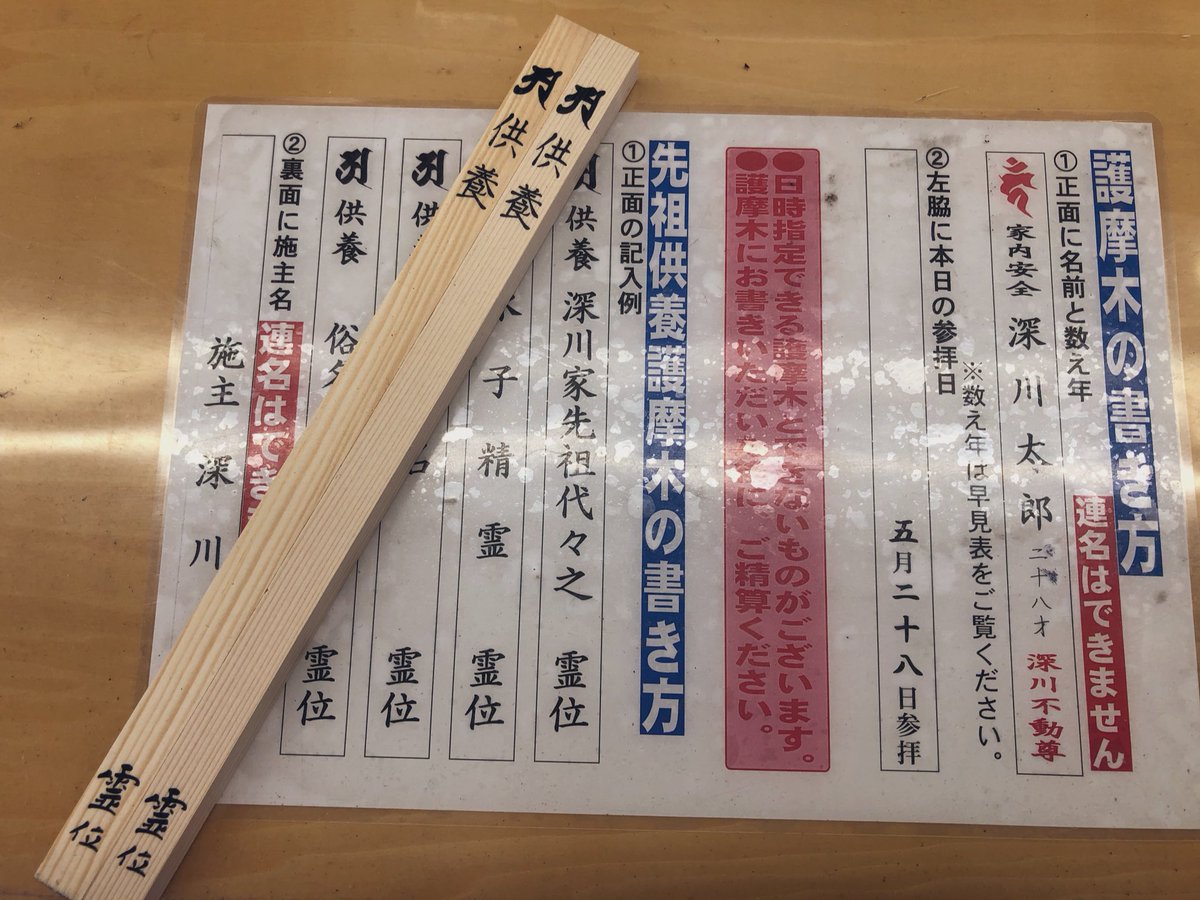 護摩木の書き方
連名はできません
①正面に名前と数え年
家内安全 深川太郎 二十八才 深川不動尊
※数え年は早見表をご覧ください。
②左脇に本日の参拝日
五月二十八日参拝
●日時指定できる護摩木とできないものがございます。
●護摩木にお書きいただいた ご精算ください。
先祖供養護摩木の書き方
①正面の記入例
供養 深川家先祖代々之 霊位
子 精霊 霊位
供 霊位
供養 俗 霊位
②裏面に施主名
連名はでき
施主 深川
供養 霊位
供養 霊位